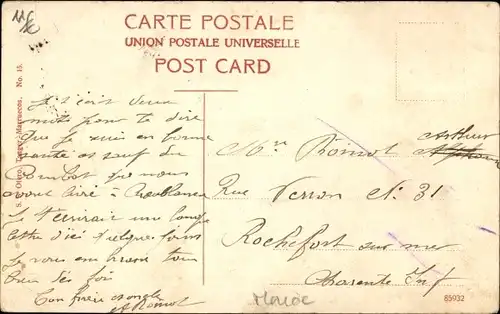 CARTE POSTALE
UNION POSTALE UNIVERSELLE
POST CARD
No. 15.
Tanger, Marruecos.
Je t'écrit deux
mots pour te dire
que je suis en bonne
santé et sauf du
Combat que nous
avont livré à Casablanca
Je t'enverrai un longue
lettre d'ici quelque jours
Je vous embrasse tous
bien des fois
Ton frère
A Romot
Mr Romot Arthur
Rue Verron N. 31
Rochefort sur mer
Charente Inf
Maroc
65932